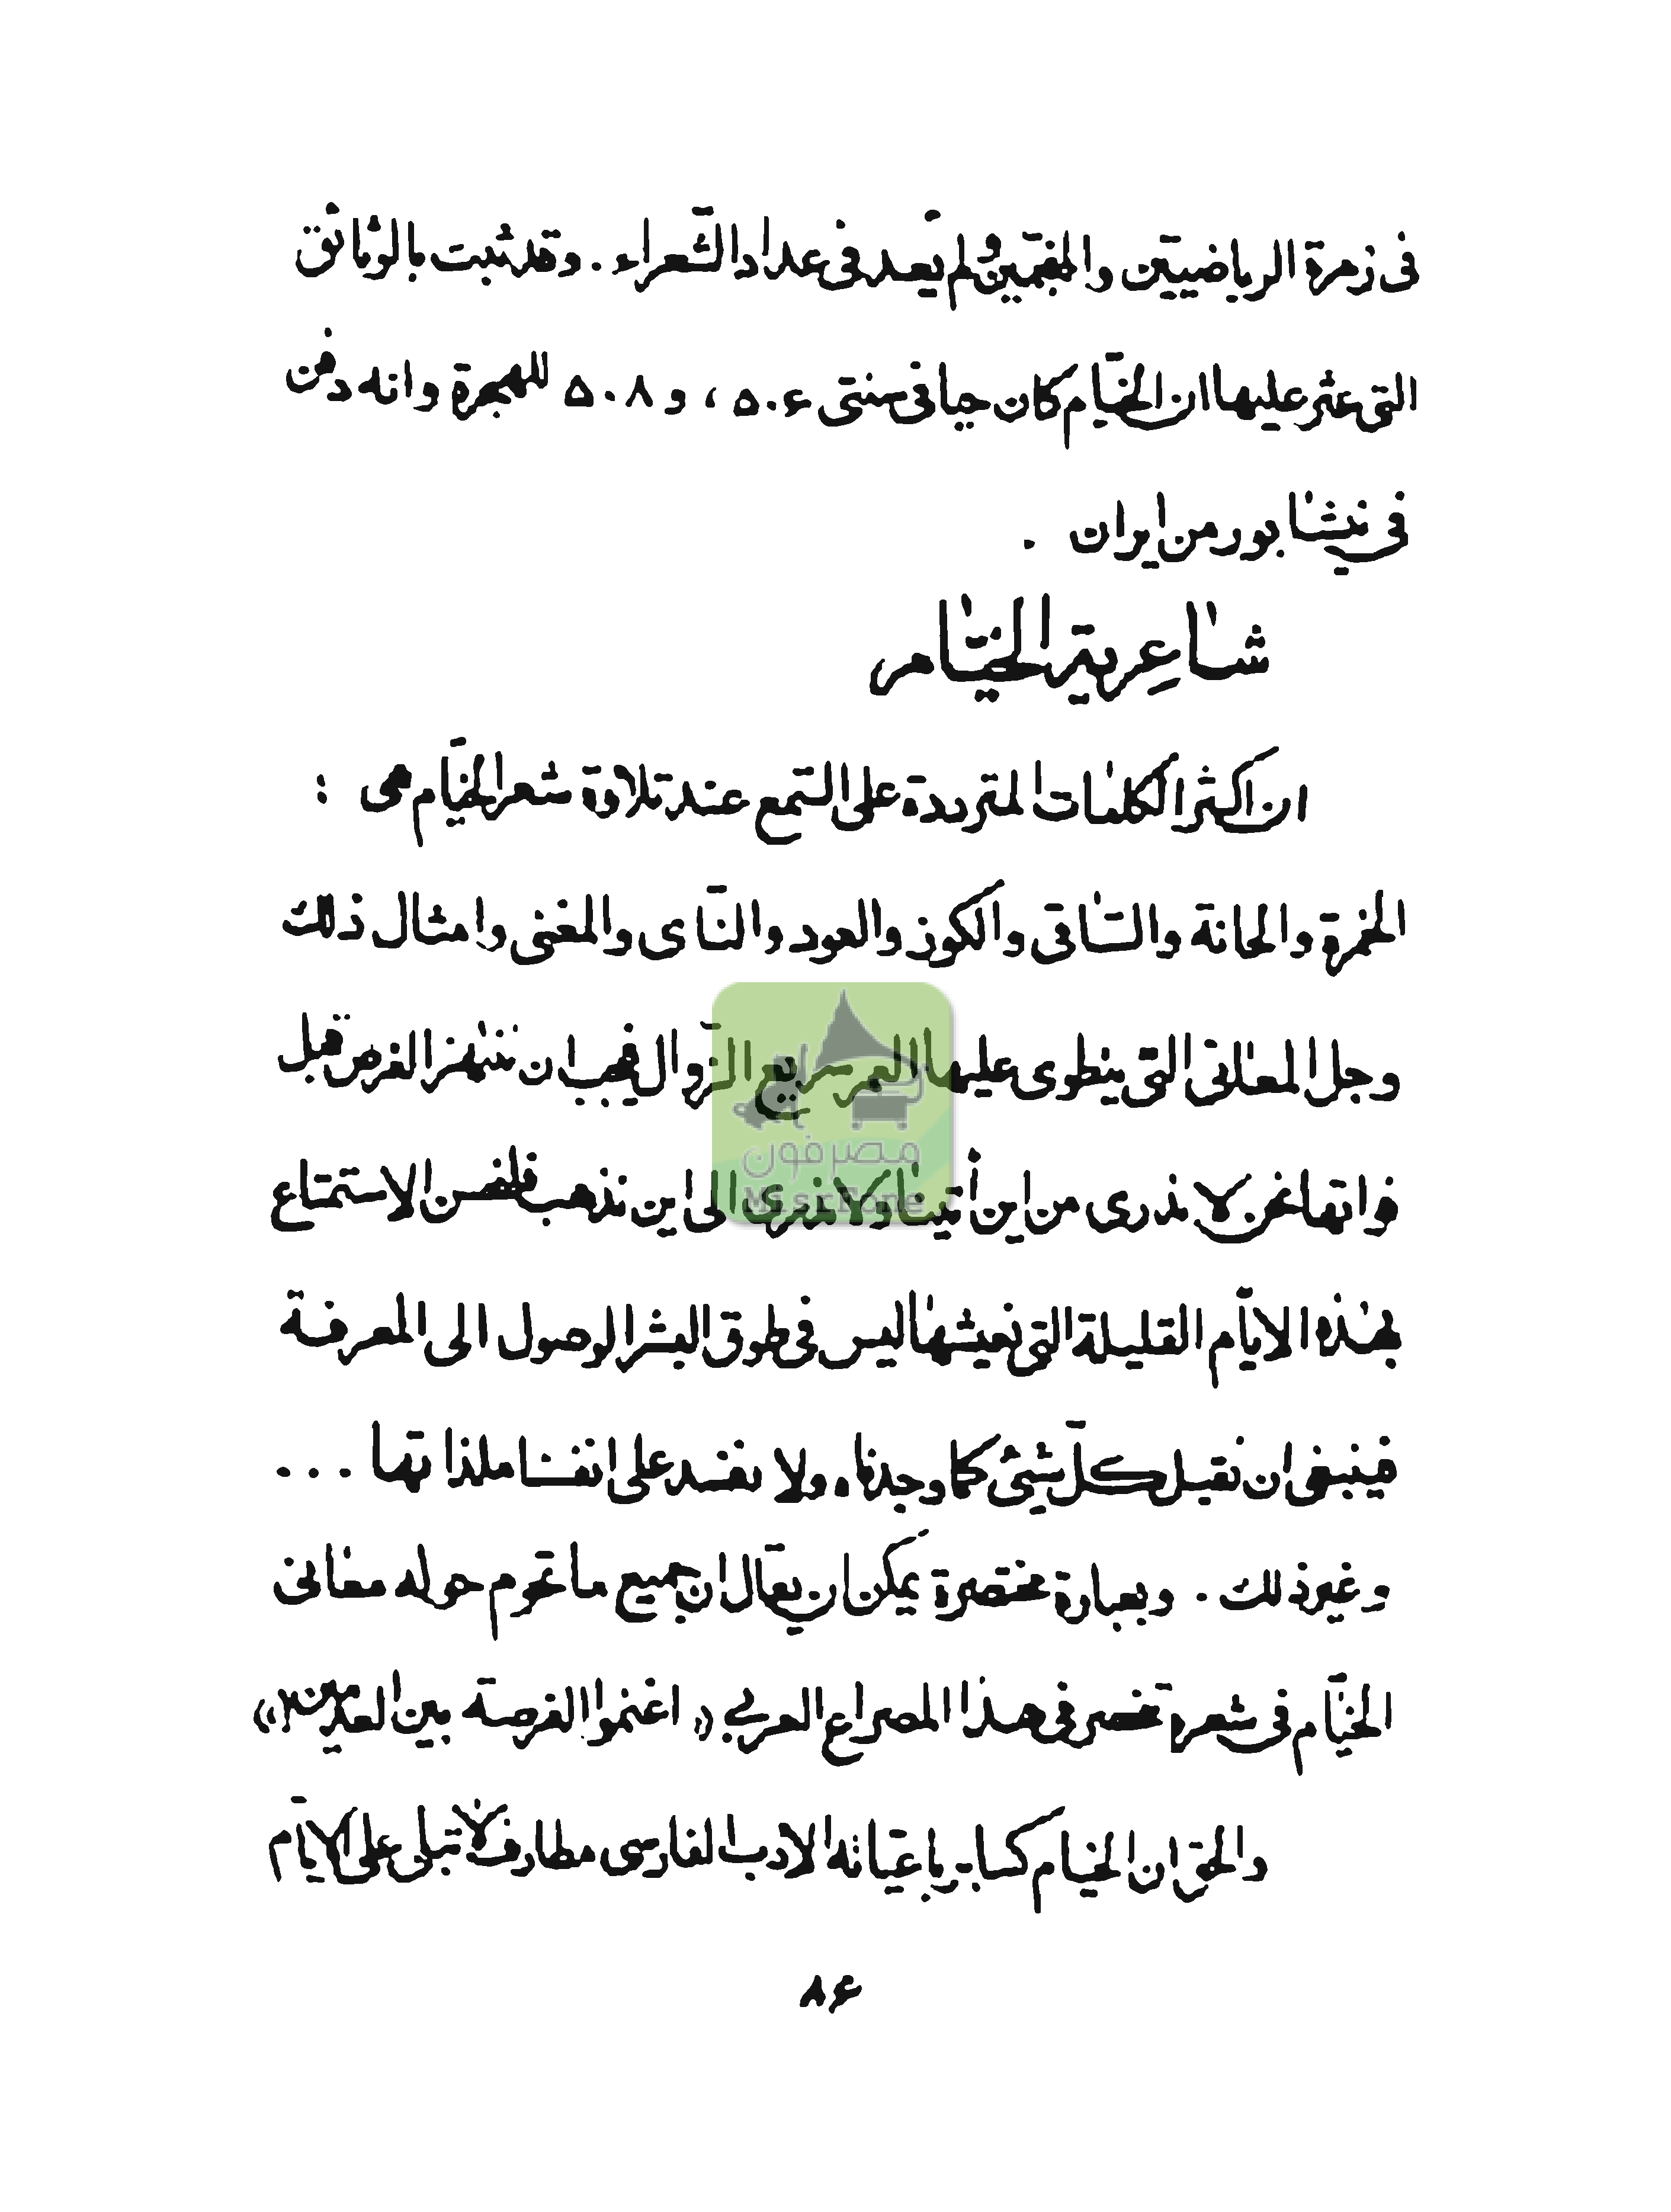 فى زمرة الرياضييّن والمنجّمين ولم يُعد فى عداد الشّعراء . وقد ثبت بالوثائق
التى عثر عليها ان الخيّام كان حيا فى سنتى ۵۰۶ ، و ۵۰۸ للهجرة وانه دفن
فى نيشابور من ايران .
شاعِرية الخيّام
ان اكثر الكلمات المترددة على السّمع عند تلاوة شعر الخيّام هى :
الخمرة والحانة والسّاقى والكوز والعود والنّاى والمغنى وامثال ذلك
وجل المعانى التى ينطوى عليها العمر سريع الزّوال فيجب ان ننتهز الفرص قبل
فواتها نحن لا ندرى من اين أتينا ولا ندرى الى اين نذهب فلنحسن الاستمتاع
بهذه الايّام القليلة التى نعيشها ليس فى طوق البشر الوصول الى المعرفة
فينبغى ان نقبل كلّ شيئ كما وجدناه ولا نفسد على انفسنا ملذاتها ...
وغير ذلك . وبعبارة مختصرة يمكن ان يقال ان جميع ما تحوم حوله معانى
الخيّام فى شعره تنحصر فى هذا المصراع العربي « اغنموا الفرصة بين العدمين »
والحق ان الخيام كسا برباعياته الادب الفارسى مطارف لا تبلى على الايّام
۸۶
مصرفون
MisrFone